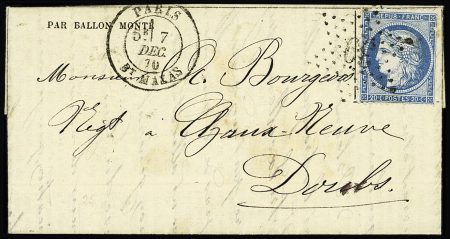 PARIS
PAR BALLON MONTÉ
7
DEC.
70
Bt MAZAS
REPUB. FRANC.
20 C POSTES 20 C
Monsieur A. Bourgeois
Négt à Chaux Neuve
Doubs.